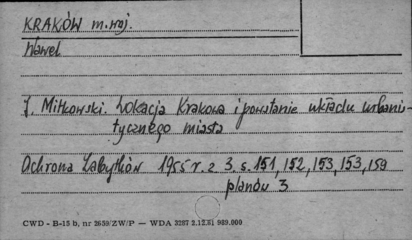 KRAKÓW m. woj.
Wawel
J. Mitkowski. Lokacja Krakowa i powstanie układu urbanis-
tycznego miasta
Ochrona Zabytków 1955 r. z 3. s. 151, 152, 153, 153, 159
planów 3
CWD - B-15 b, nr 2659/ZW/P — WDA 3287 2.12.81 989.000